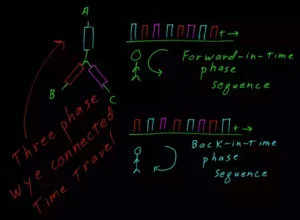 A
B
C
Three phase
wye connected
Time Travel
+
Forward-in-time
phase
sequence
+
Back-in-Time
phase
sequence